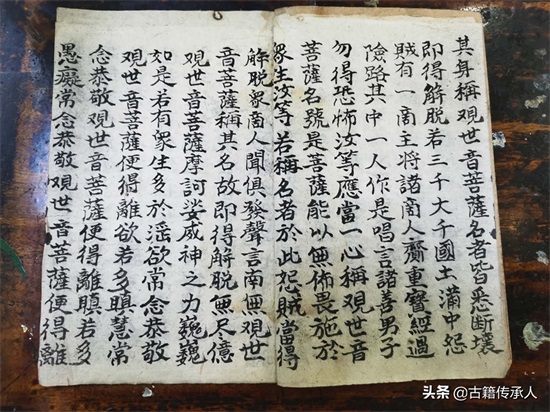 其身稱觀世音菩薩名者皆悉斷壞
即得解脫若三千大千國土滿中怨
賊有一商主將諸商人齎重寶經過
險路其中一人作是唱言諸善男子
勿得恐怖汝等應當一心稱觀世音
菩薩名號是菩薩能以無怖畏施於
衆生汝等若稱名者於此怨賊當得
解脫衆商人聞俱發聲言南無觀世
音菩薩稱其名故即得解脫無尽億
觀世音菩薩摩訶娑威神之力巍巍
如是若有衆生多於淫欲常念恭敬
觀世音菩薩便得離欲若多瞋慧常
念恭敬觀世音菩薩便得離瞋若多
愚癡常念恭敬觀世音菩薩便得離
头条@古籍传承人